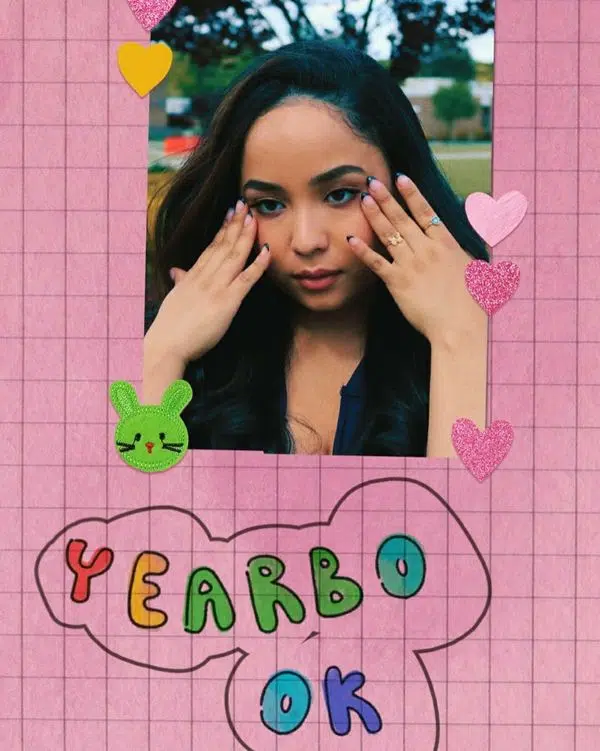 YEARBO
OK